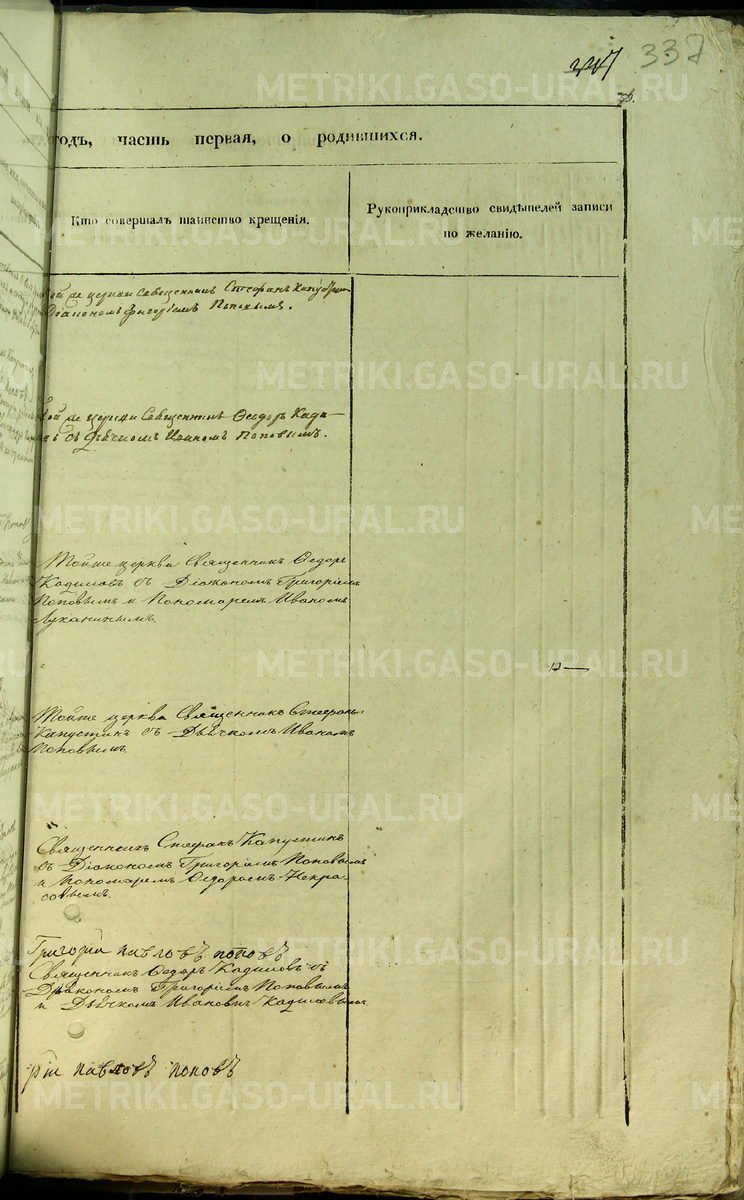 337
годъ, часть первая, о родившихся.
Кто совершалъ таинство крещенія.
Рукоприкладство свидѣтелей записи
по желанію.
той же церкви Священникъ Стефанъ Капустин
Діакономъ Григоріемъ Поповымъ.
той же церкви Священникъ Ѳеодоръ Кади-
въ съ Дьячкомъ Иваномъ Поповымъ.
Тойже церкви Священникъ Ѳедоръ
Кадиловъ съ Діакономъ Григоріемъ
Поповымъ и Пономаремъ Иваномъ
Луканинымъ.
Тойже церкви Священникъ Стефанъ
Капустинъ съ Дьячкомъ Иваномъ
Поповымъ.
Священникъ Стефанъ Капустинъ
съ Діакономъ Григоріемъ Поповымъ
и Пономаремъ Ѳедоромъ Некра-
совымъ.
Григорій Павловъ Поповъ
Священникъ Ѳедоръ Кадиловъ съ
Діакономъ Григоріемъ Поповымъ
и Дьячкомъ Кадиловымъ.
рій Павловъ Поповъ
METRIKI.GASO-URAL.RU